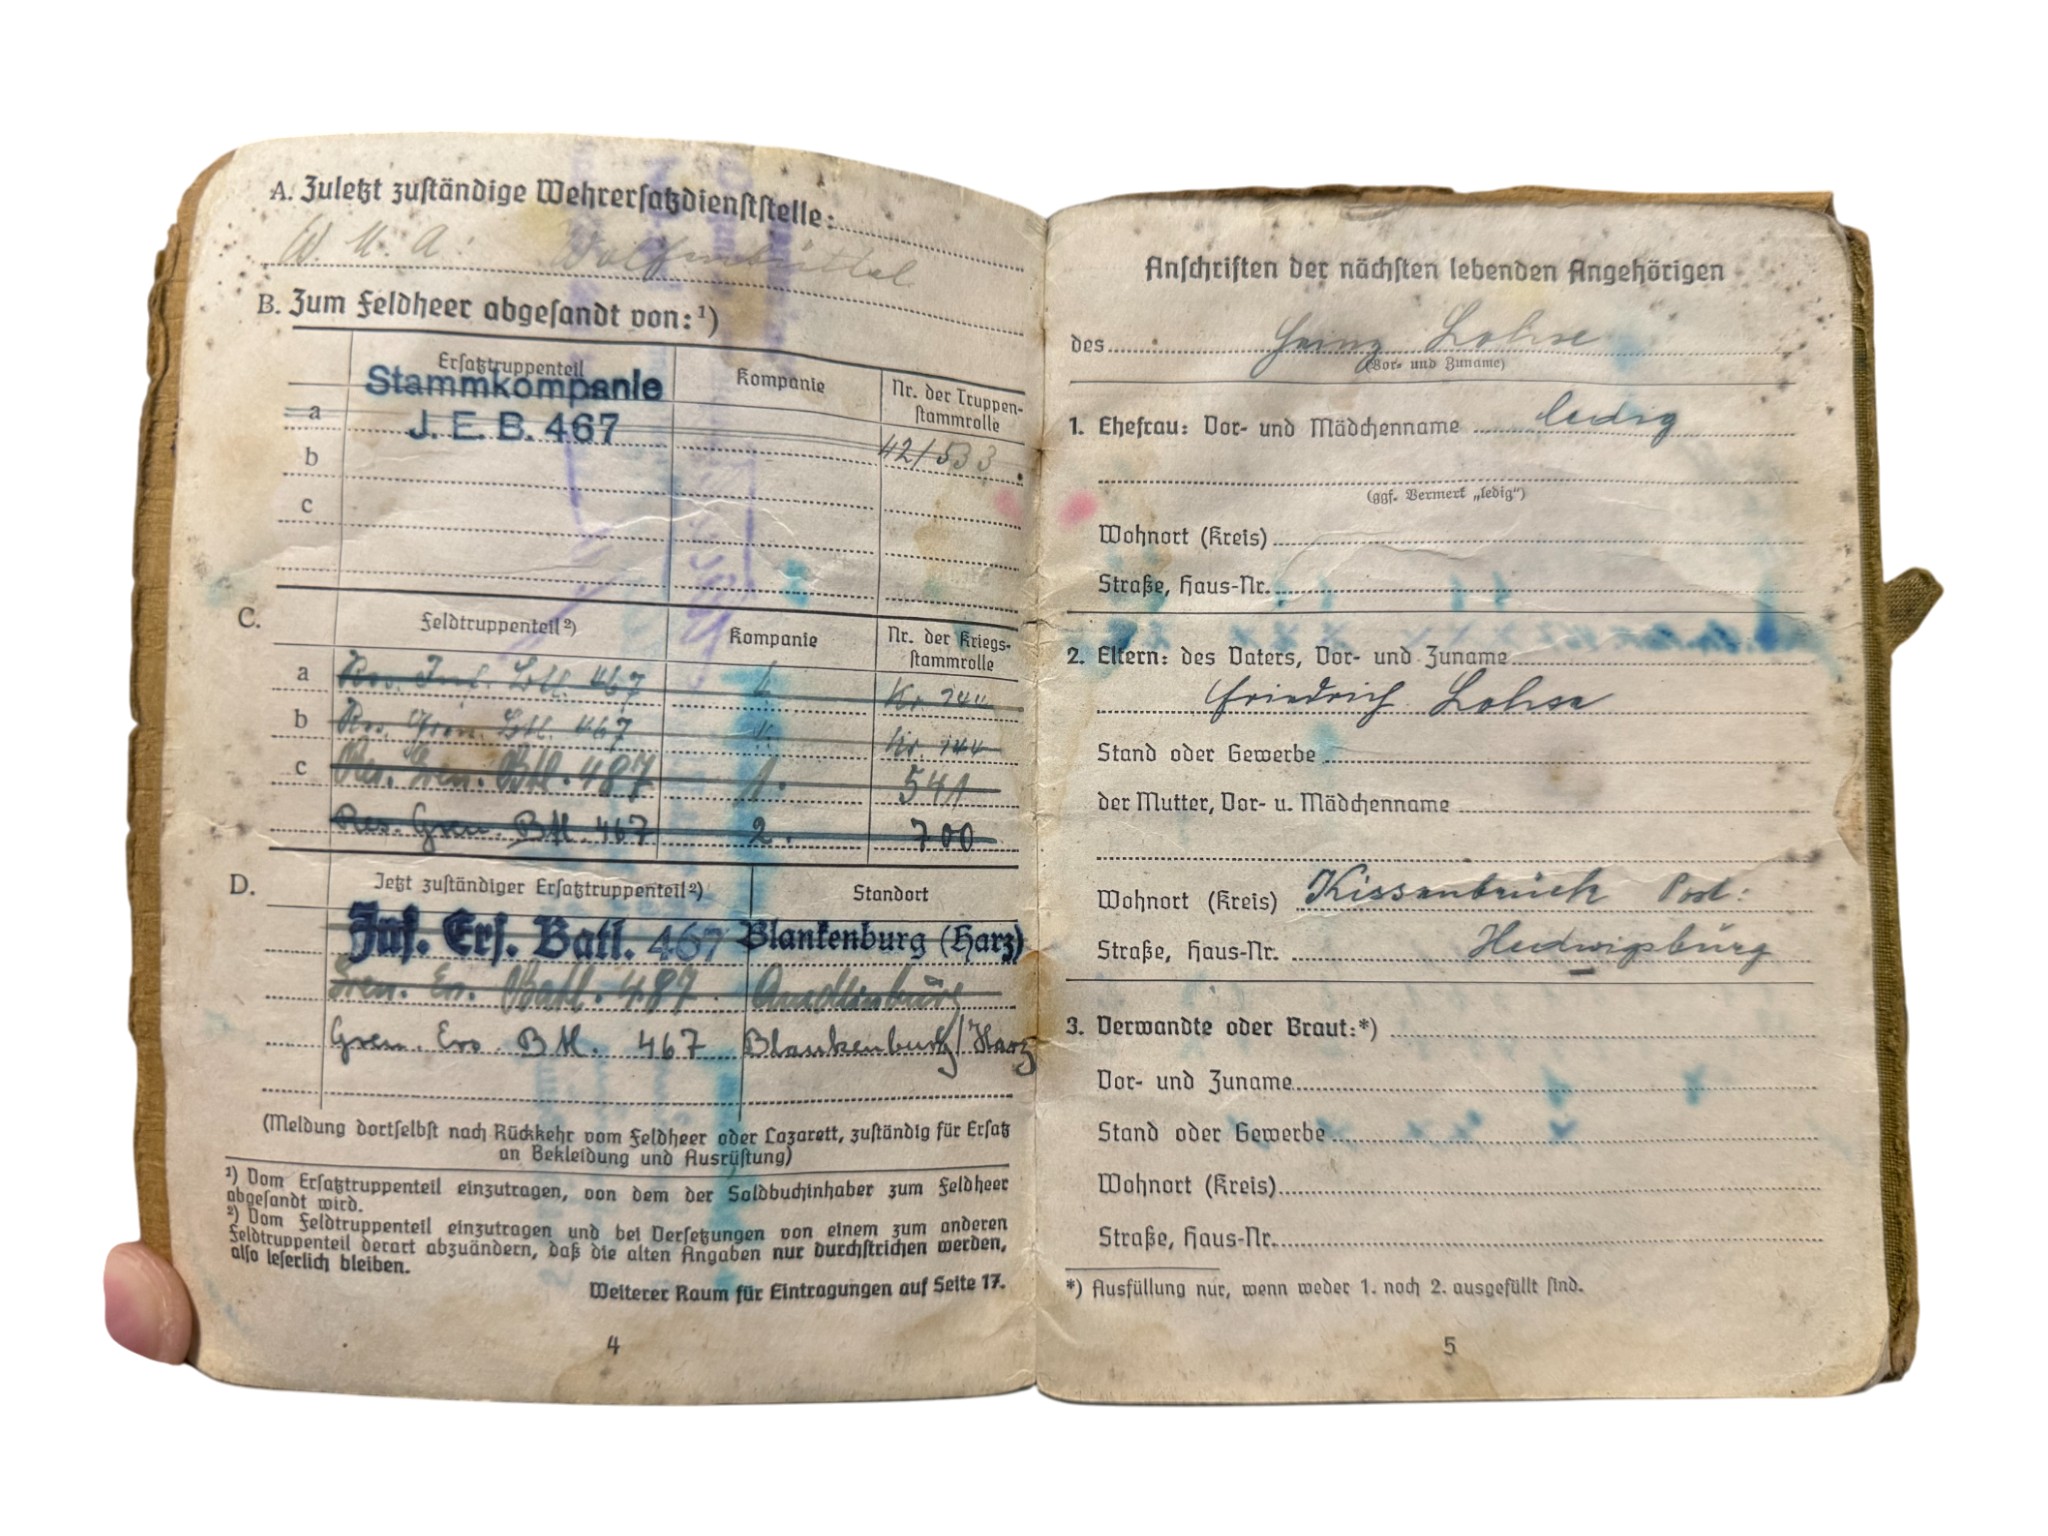 A. Zuletzt zuständige Wehrersatzdienststelle:
W. M. A. Wolfenbüttel
B. Zum Feldheer abgesandt von:¹)
Ersatztruppenteil Kompanie Nr. der Truppenstammrolle
a Stammkompanie
J. E. B. 467 42/533
b
c
C. Feldtruppenteil²) Kompanie Nr. der Kriegsstammrolle
a Res. Inf. Btl. 467 Kr
b Res. Gren. Btl. 467
c Res. Gren. Btl. 487 1. 541
Res. Gren. Btl. 467 2. 700
D. Jetzt zuständiger Ersatztruppenteil²) Standort
Inf. Ers. Batl. 467 Blankenburg (Harz)
Gren. Ers. Batl. 487
Gren. Ers. Btl. 467 Blankenburg/Harz
(Meldung dortselbst nach Rückkehr vom Feldheer oder Lazarett, zuständig für Ersatz
an Bekleidung und Ausrüstung)
¹) Vom Ersatztruppenteil einzutragen, von dem der Soldbuchinhaber zum Feldheer
abgesandt wird.
²) Vom Feldtruppenteil einzutragen und bei Versetzungen von einem zum anderen
Feldtruppenteil derart abzuändern, daß die alten Angaben nur durchstrichen werden,
also leserlich bleiben.
Weiterer Raum für Eintragungen auf Seite 17.
4
Anschriften der nächsten lebenden Angehörigen
des Heinz Lohse
(Vor- und Zuname)
1. Ehefrau: Vor- und Mädchenname ledig
(ggf. Vermerk „ledig")
Wohnort (Kreis)
Straße, Haus-Nr.
2. Eltern: des Vaters, Vor- und Zuname
Friedrich Lohse
Stand oder Gewerbe
der Mutter, Vor- u. Mädchenname
Wohnort (Kreis) Kissenbrück Post:
Straße, Haus-Nr. Hedwigsburg
3. Verwandte oder Braut:*)
Vor- und Zuname
Stand oder Gewerbe
Wohnort (Kreis)
Straße, Haus-Nr.
*) Ausfüllung nur, wenn weder 1. noch 2. ausgefüllt sind.
5